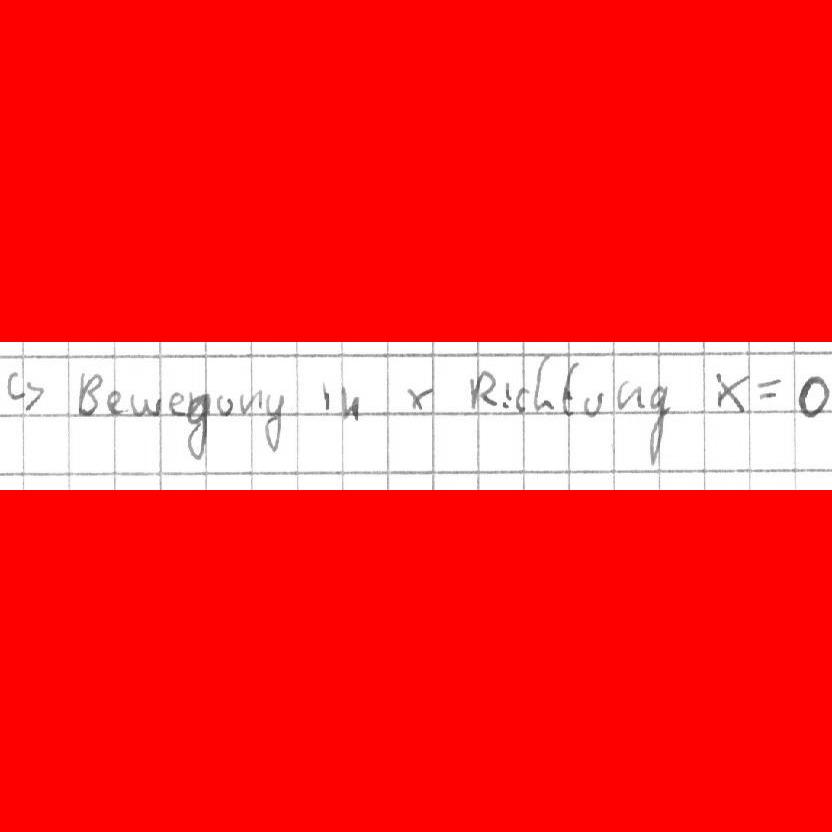 ↳ Bewegung in x Richtung x = 0